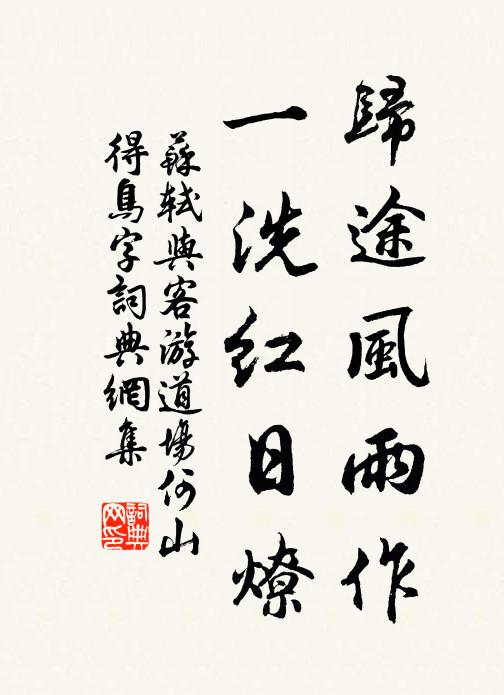 歸途風雨作
一洗紅日燎
蘇軾與客游道場何山
得鳥字詞典網集
詞典
网印